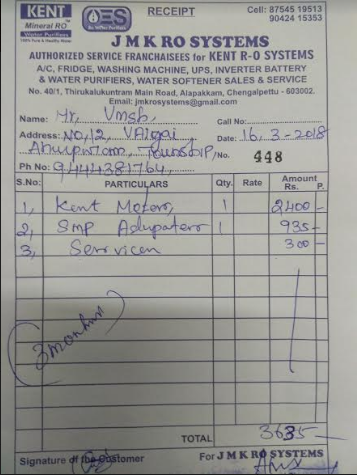 KENT
Mineral RO™
Water Purifiers
OES
RECEIPT
Cell: 87545 19513
90424 15353
JMK RO SYSTEMS
AUTHORIZED SERVICE FRANCHAISEES for KENT R-O SYSTEMS
A/C, FRIDGE, WASHING MACHINE, UPS, INVERTER BATTERY
& WATER PURIFIERS, WATER SOFTENER SALES & SERVICE
No. 40/1, Thirukalukuntram Main Road, Alapakkam, Chengalpettu - 603002.
Email: jmkrosystems@gmail.com
Name: Mr, Umsh, Call No:
Address: No,12, VAigai Date: 16.3-2018
Township, /No. 448
Ph No: 9444381764,
S.No: PARTICULARS Qty. Rate Amount Rs. P.
1, Kent Motors, 1 2400 -
2, SMP Adupaters 1 935 -
3, Servicen 300 -
3 months
TOTAL 3635 -
Signature of the Customer For JMK RO SYSTEMS